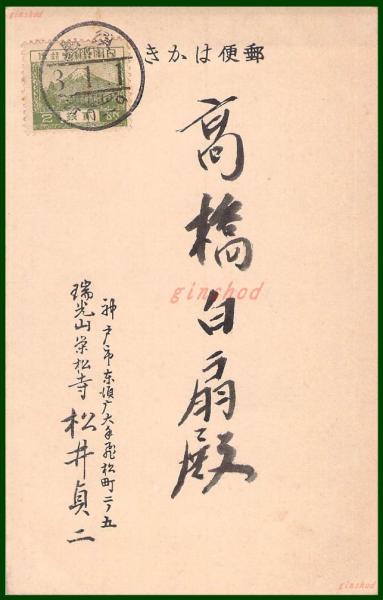 ginshod
郵便はがき
3.1.1
高橋白扇殿
ginshod
神戸市東須广大手飛松町二ノ五
瑞光山栄松寺 松井貞二
ginshod